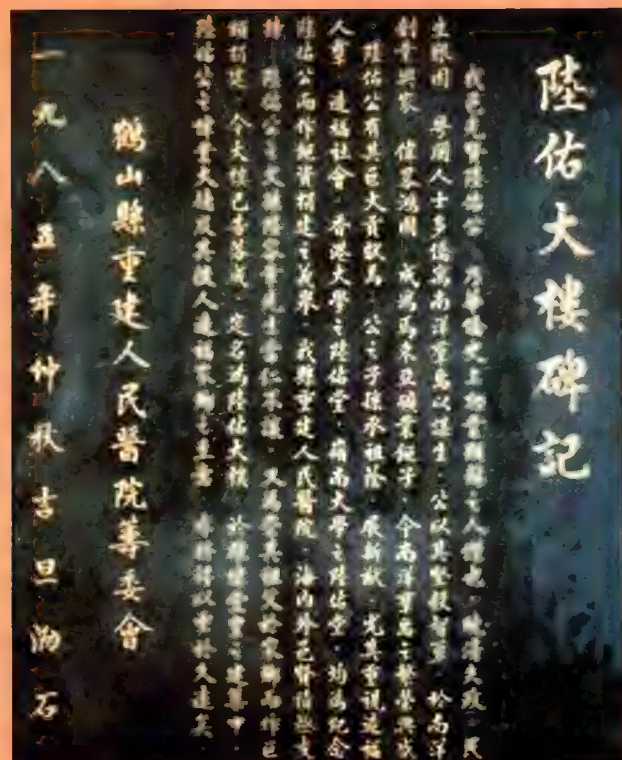 陸佑大樓碑記
我邑先賢陸佑公 乃華僑史上初業顯赫之人傑也 晚清失政 民
生艱困 粵閩人士多僑寓南洋羣島以謀生 公以其堅毅智勇 於南洋
創業興家 偉裘鴻圖 成為馬來亞礦業鉅子 今南洋羣島之繁榮興盛
陸佑公有其巨大貢獻焉 公之子孫承祖蔭 展新猷 尤其重視造福
人羣 造福社會 香港大學之陸佑堂 嶺南大學之陸佑堂 均為紀念
陸佑公而作鉅資捐建之義舉 我縣重建人民醫院 海內外邑賢偕熱支
持 陸佑公之文孫陸容章先生當仁不讓 又為榮其祖父於家鄉而作巨
額捐獻 今大樓已喜落成 定名為陸佑大樓 於輝煌堂皇之建築中
陸佑公之偉業大德及其後人造福家鄉之至意 亦將得以垂於久遠矣
鶴山縣重建人民醫院籌委會
一九八五年仲秋吉旦泐石